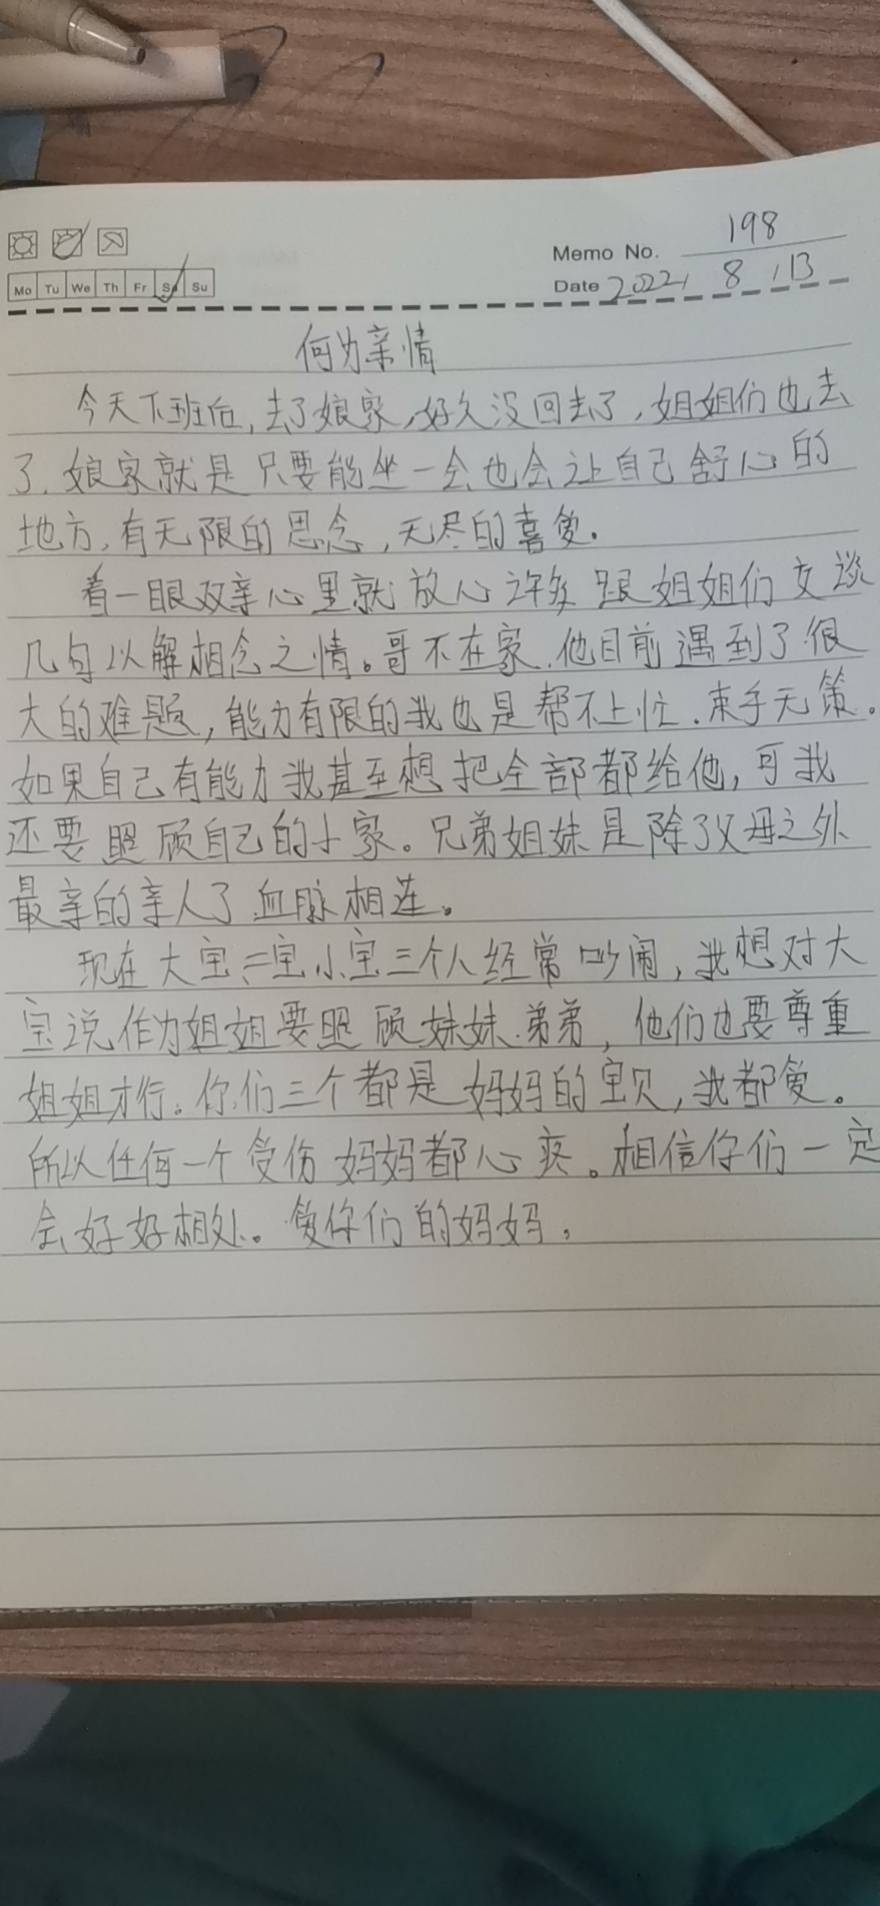 Memo No. 198
Mo Tu We Th Fr Sa Su
Date 2022 / 8 / 13
何为亲情
今天下班后,去了娘家,好久没回去了,姐姐们也去
了.娘家就是只要能坐一会也会让自己舒心的
地方,有无限的思念,无尽的喜爱.
看一眼双亲心里就放心许多 跟姐姐们交谈
几句以解相念之情。哥不在家.他目前遇到了很
大的难题,能力有限的我也是帮不上忙.束手无策。
如果自己有能力我甚至想把全部都给他,可我
还要照顾自己的小家。兄弟姐妹是除了父母之外
最亲的亲人了血脉相连。
现在大宝二宝小宝三个人经常吵闹,我想对大
宝说作为姐姐要照顾妹妹.弟弟,他们也要尊重
姐姐才行.你们三个都是妈妈的宝贝,我都爱。
所以任何一个受伤妈妈都心疼。相信你们一定
会好好相处。爱你们的妈妈.